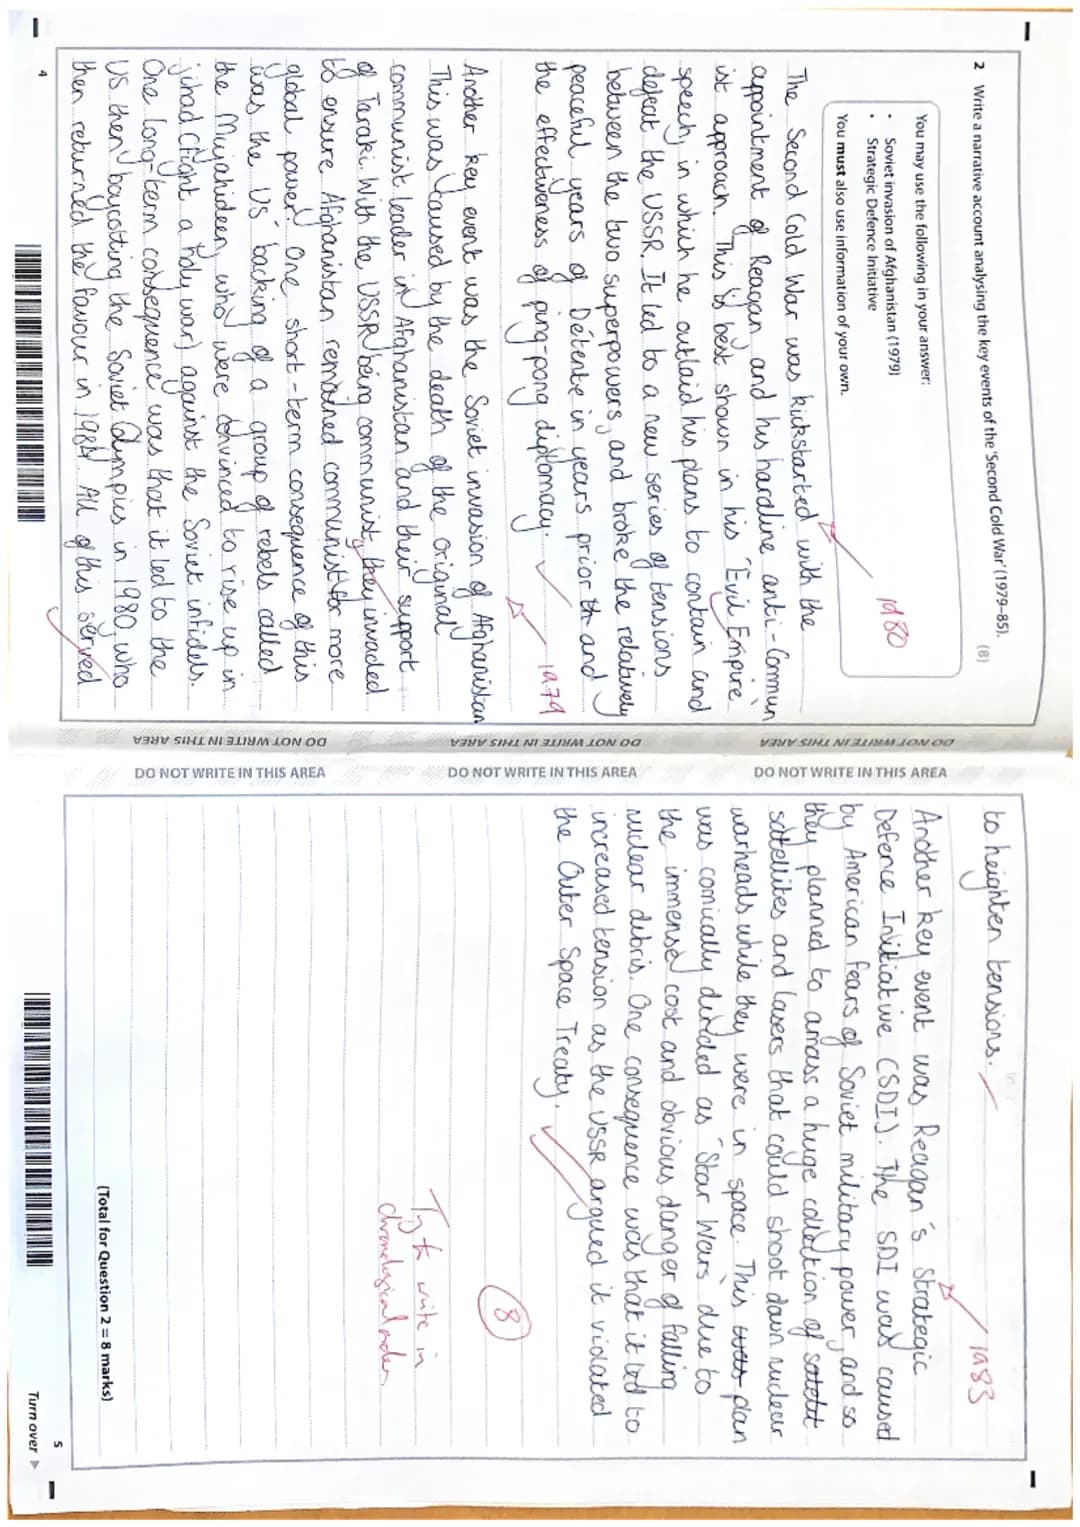 2 Write a narrative account analysing the key events of the 'Second Cold War' (1979–85).
(8)
You may use the following in your answer:
• Soviet invasion of Afghanistan (1979)
• Strategic Defence Initiative
You must also use information of your own.
1980
The Second Cold War was kickstarted with the
appointment of Reagan and his hardline anti-Commun
ist approach. This is best shown in his 'Evil Empire
speech, in which he outlaid his plans to contain and
defeat the USSR. It led to a new series of tensions
between the two superpowers, and broke the relatively
peaceful years of Détente in years prior and
the effectiveness of ping-pong diplomacy.
1979
Another key event was the Soviet invasion of Afghanistan
This was caused by the death of the original
communist leader in Afghanistan and their support
of Taraki. With the USSR being communist, they invaded
to ensure Afghanistan remained communist for more
global power. One short-term consequence of this
was the US' backing of a group of rebels called
the Mujahideen, who were convinced to rise up in
jihad (fight a holy war) against the Soviet infidels.
One long-term consequence was that it led to the
US then boycotting the Soviet Olympics in 1980, who
then returned the favour in 1984. All of this served
4
DO NOT WRITE IN THIS AREA
DO NOT WRITE IN THIS AREA
DO NOT WRITE IN THIS AREA
DO NOT WRITE IN THIS AREA
DO NOT WRITE IN THIS AREA
DO NOT WRITE IN THIS AREA
to heighten tensions.
1983
Another key event was Reagan's Strategic
Defence Initiative (SDI). The SDI was caused
by American fears of Soviet military power, and so
they planned to amass a huge collection of satelit
satellites and lasers that could shoot down nuclear
warheads while they were in space. This was plan
was comically dubbed as 'Star Wars' due to
the immense cost and obvious danger of falling
nuclear debris. One consequence was that it led to
increased tension as the USSR argued it violated
the Outer Space Treaty.
8
Try to write in
chronological order,
(Total for Question 2 = 8 marks)
5
Turn over ▶